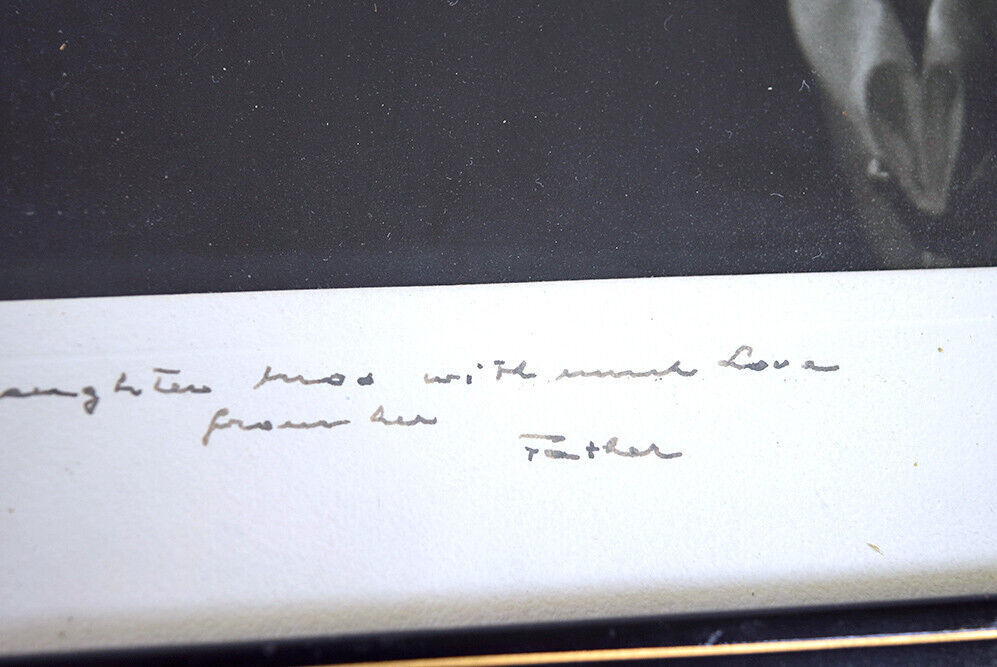 aughter with much Love
from her
Father